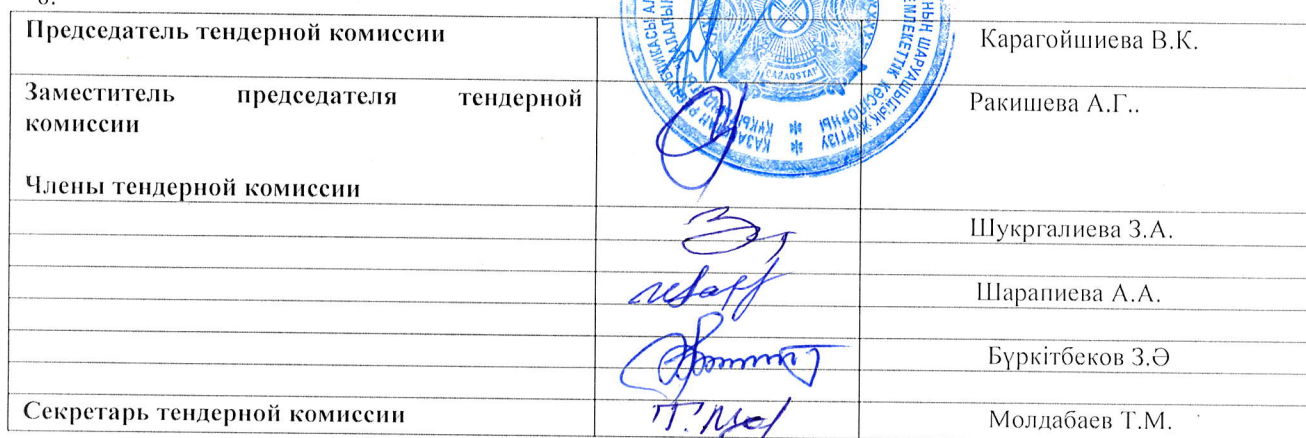 Председатель тендерной комиссии Карагойшиева В.К.
Заместитель председателя тендерной Ракишева А.Г..
комиссии
Члены тендерной комиссии
Шукргалиева З.А.
Шарапиева А.А.
Бүркітбеков З.Ә
Секретарь тендерной комиссии Молдабаев Т.М.
QAZAQSTAN